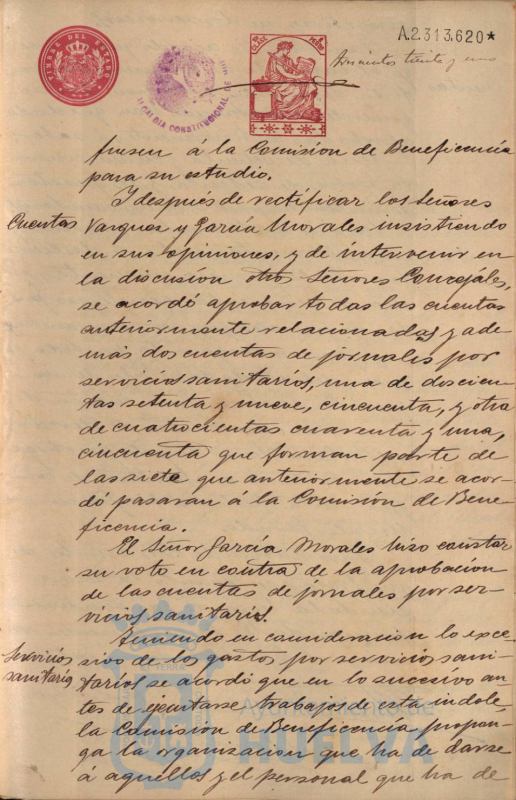 A.2.313.620*
TIMBRE DEL ESTADO
ALCALDIA CONSTITUCIONAL
treinta y uno
fuesen á la Comisión de Beneficencia
para su estudio.
Y después de rectificar los Señores
Cuentas
Vazquez y García Morales insistiendo
en sus opiniones, y de intervenir en
la discusión otros Señores Concejales,
se acordó aprobar todas las cuentas
anteriormente relacionadas y ade-
más dos cuentas de jornales por
servicios sanitarios, una de doscien-
tas setenta y nueve, cincuenta, y otra
de cuatrocientas cuarenta y una,
cincuenta que forman parte de
las siete que anteriormente se acor-
dó pasaran á la Comisión de Bene-
ficencia.
El Señor García Morales hizo constar
su voto en contra de la aprobación
de las cuentas de jornales por ser-
vicios sanitarios.
Servicios
sanitarios
Teniendo en consideración lo exce-
sivo de los gastos por servicios sani-
tarios se acordó que en lo sucesivo an-
tes de ejecutarse trabajos de esta indole,
la Comisión de Beneficencia propon-
ga la organizacion que ha de darse
á aquellos y el personal que ha de
Ayuntamiento de
HUELVA